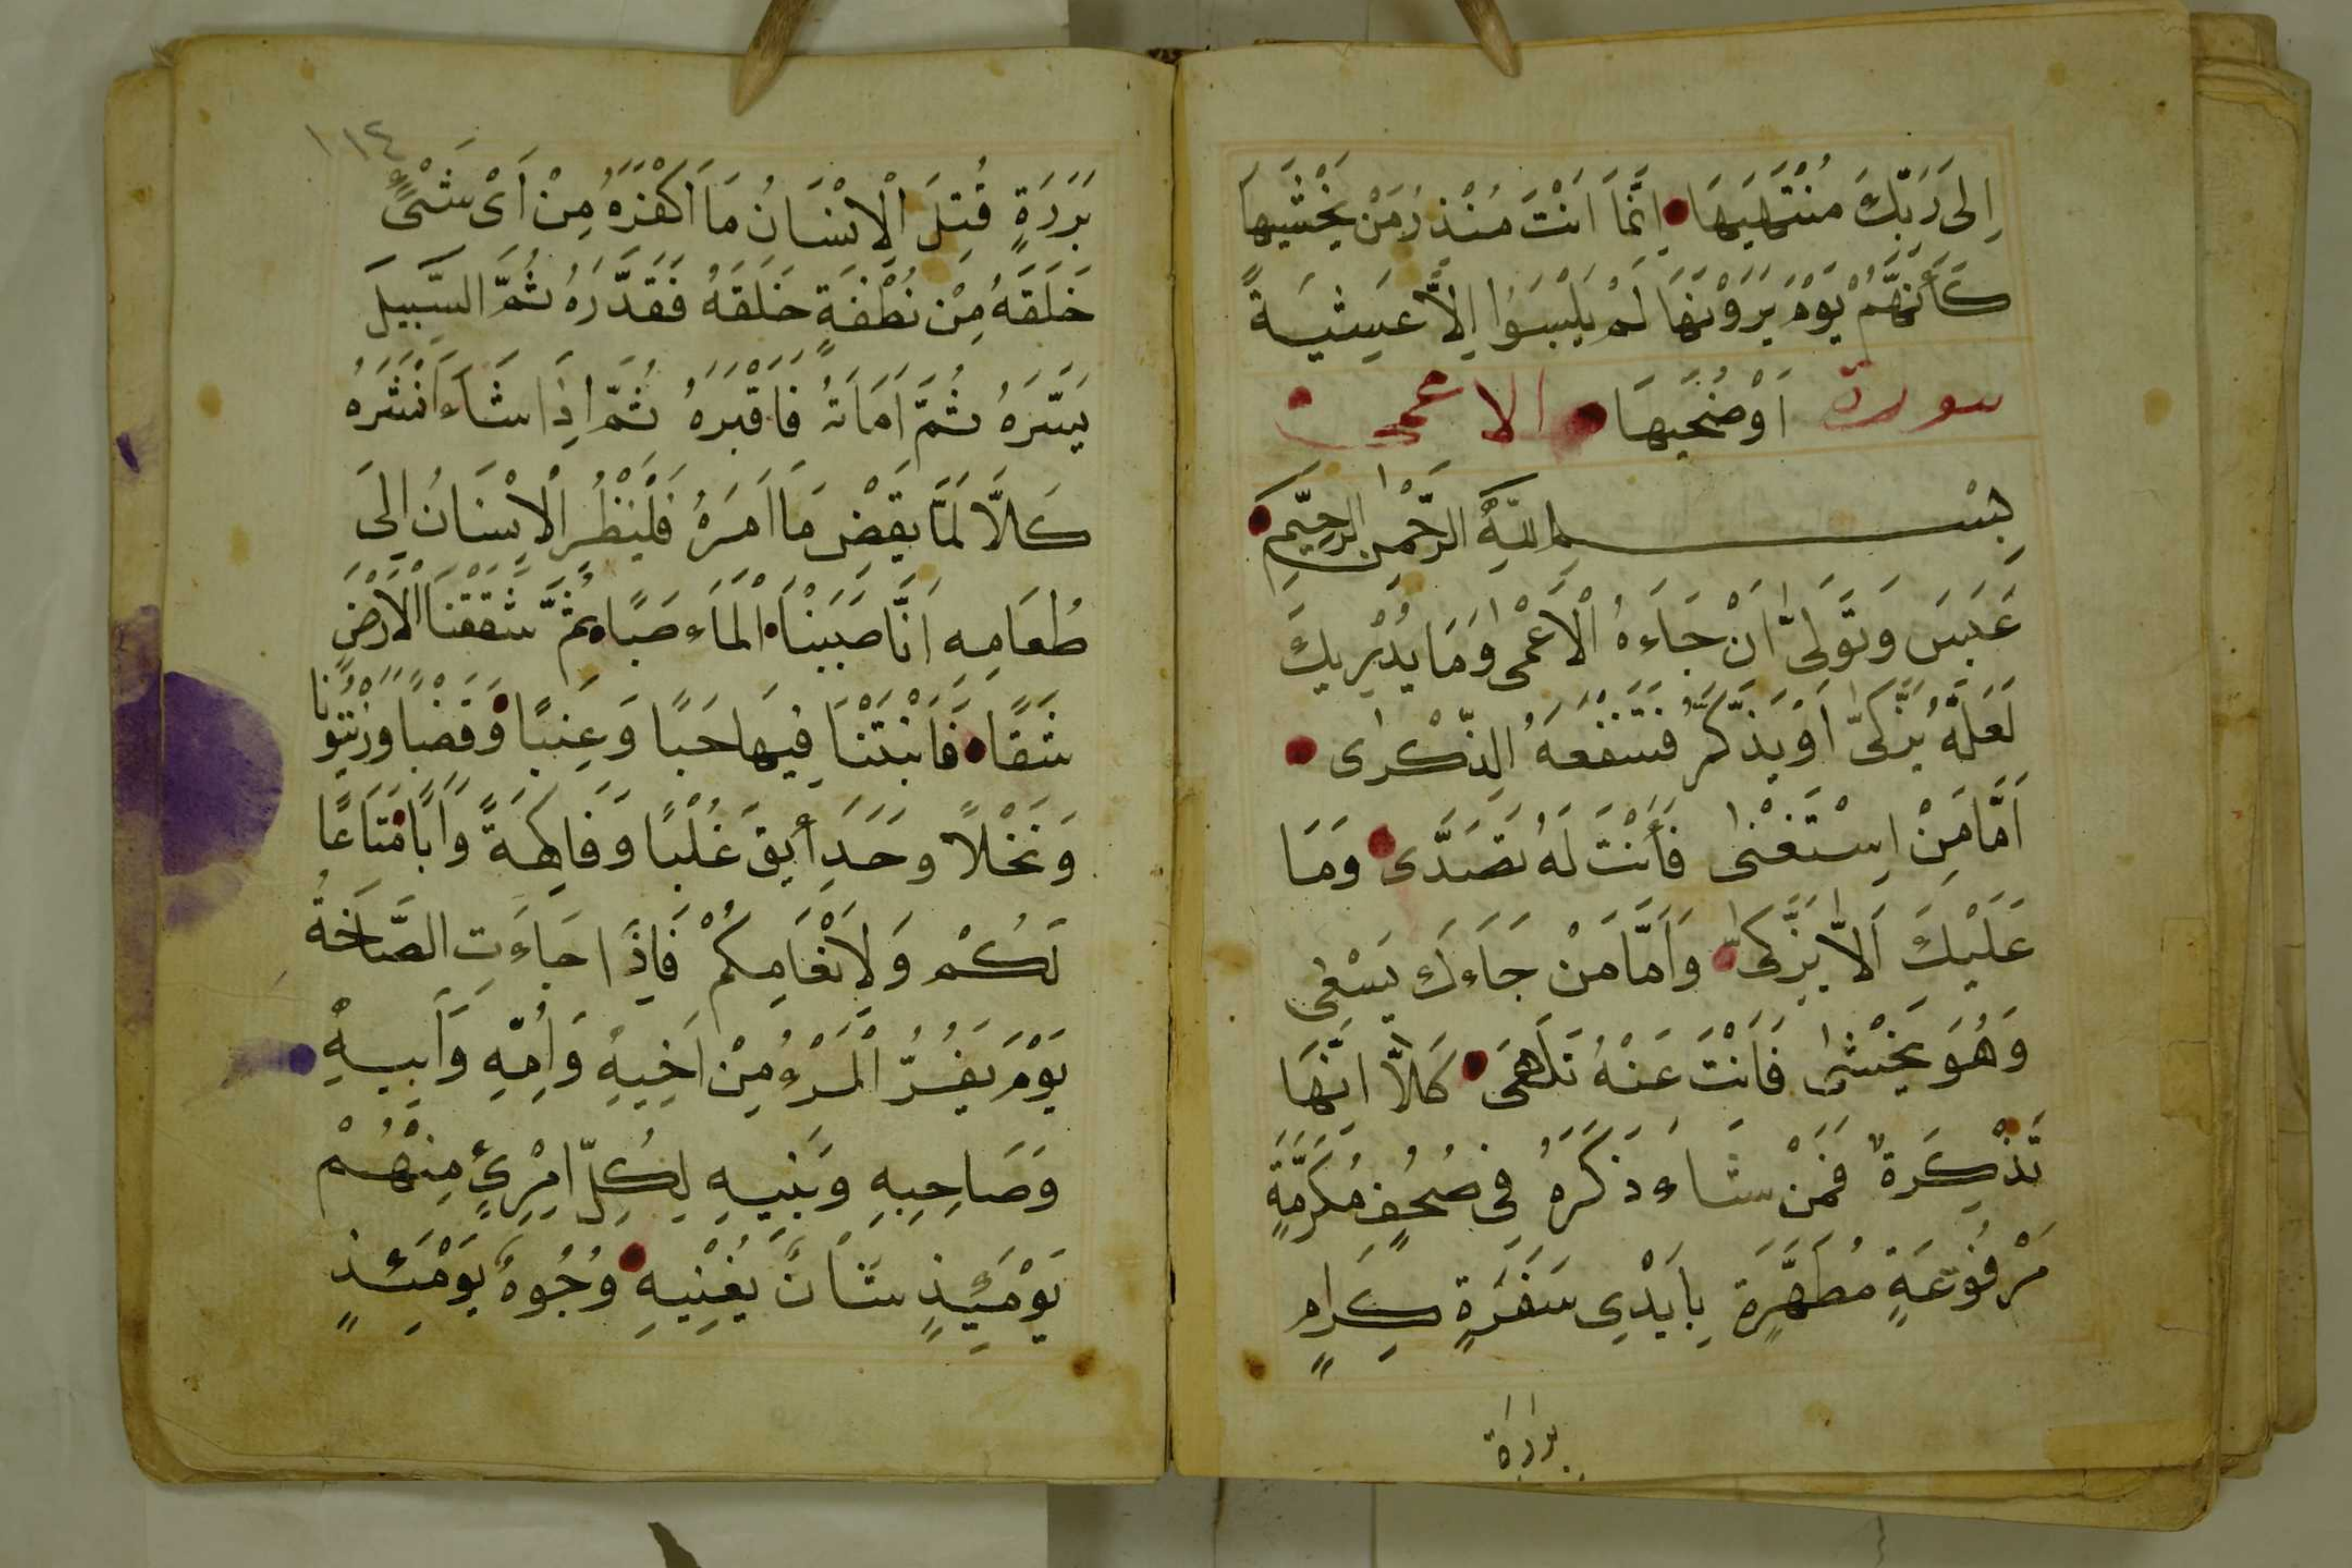 اِلٰى رَبِّكَ مُنْتَهٰيهَا اِنَّمَا اَنْتَ مُنْذِرُ مَنْ يَخْشٰيهَا
كَأَنَّهُمْ يَوْمَ يَرَوْنَهَا لَمْ يَلْبَسَوُا اِلاَّ عَشِيَةً
سورة اَوْضُحٰيهَا الاعمى
بِسْمِ اللّٰهِ الرَّحْمٰنِ الرَّحِيمِ
عَبَسَ وَتَوَلّٰى اَنْ جَاءَهُ الْاَعْمٰى وَمَا يُدْرِيكَ
لَعَلَّهُ يَزَّكّٰى اَوْ يَذَّكَّرُ فَتَنْفَعَهُ الذِّكْرٰى
اَمَّا مَنْ اِسْتَغْنٰى فَأَنْتَ لَهُ تَصَدّٰى وَمَا
عَلَيْكَ اَلاَّ يَزَّكّٰى وَاَمَّا مَنْ جَاءَكَ يَسْعٰى
وَهُوَ يَخْشٰى فَاَنْتَ عَنْهُ تَلَهّٰى كَلاَّ اِنَّهَا
تَذْكِرَةٌ فَمَنْ شَاءَ ذَكَرَهُ فِى صُحُفٍ مُكَرَّمَةٍ
مَرْفُوعَةٍ مُطَهَّرَةٍ بِاَيْدِى سَفَرَةٍ كِرَامٍ
بررة
١١٤
بَرَرَةٍ قُتِلَ الْاِنْسَانُ مَا اَكْفَرَهُ مِنْ اَىِّ شَىْءٍ
خَلَقَهُ مِنْ نُطْفَةٍ خَلَقَهُ فَقَدَّرَهُ ثُمَّ السَّبِيلَ
يَسَّرَهُ ثُمَّ اَمَاتَهُ فَاَقْبَرَهُ ثُمَّ اِذَا شَاءَ اَنْشَرَهُ
كَلاَّ لَمَّا يَقْضِ مَا اَمَرَهُ فَلْيَنْظُرِ الْاِنْسَانُ اِلَى
طَعَامِهِ اَنَّا صَبَبْنَا الْمَاءَ صَبًّا ثُمَّ شَقَقْنَا الْاَرْضَ
شَقًّا فَاَنْبَتْنَا فِيهَا حَبًا وَعِنَبًا وَقَضْبًا وَزَيْتُونًا
وَنَخْلاً وَحَدَأيِقَ غُلْبًا وَفَاكِهَةً وَاَبًّا مَتَاعًا
لَكُمْ وَلِاَنْعَامِكُمْ فَاِذَا جَاءَتِ الصَّاخَّةُ
يَوْمَ يَفِرُّ الْمَرْءُ مِنْ اَخِيهِ وَاُمِّهِ وَاَبِيهِ
وَصَاحِبِهِ وَبَنِيهِ لِكُلِّ امْرِئٍ مِنْهُمْ
يَوْمَئِذٍ شَاْنٌ يُغْنِيهِ وُجُوهٌ يَوْمَئِذٍ